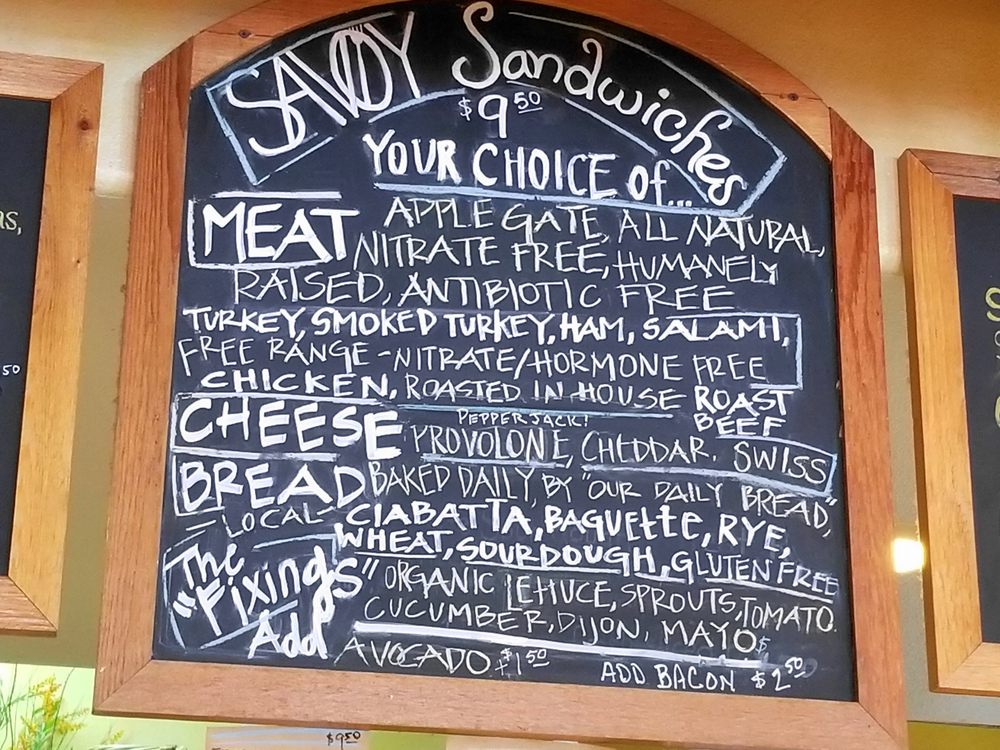 SAVOY Sandwiches
$9 50
YOUR CHOICE Of...
MEAT APPLE GATE, ALL NATURAL,
NITRATE FREE, HUMANELY
RAISED, ANTIBIOTIC FREE
TURKEY, SMOKED TURKEY, HAM, SALAMI,
FREE RANGE - NITRATE/HORMONE FREE
CHICKEN, ROASTED IN HOUSE ROAST
BEEF
PEPPER JACK!
CHEESE PROVOLONE, CHEDDAR. SWISS
BREAD BAKED DAILY, BY "OUR DAILY BREAD,"
- LOCAL - CIABATTA, BAGUETTE, RYE,
WHEAT, SOURDOUGH, GLUTEN FREE
The "Fixings" ORGANIC LETTUCE, SPROUTS, TOMATO.
CUCUMBER, DIJON, MAYO $
Add AVOCADO $1 50 ADD BACON $2 50
$9 50
50